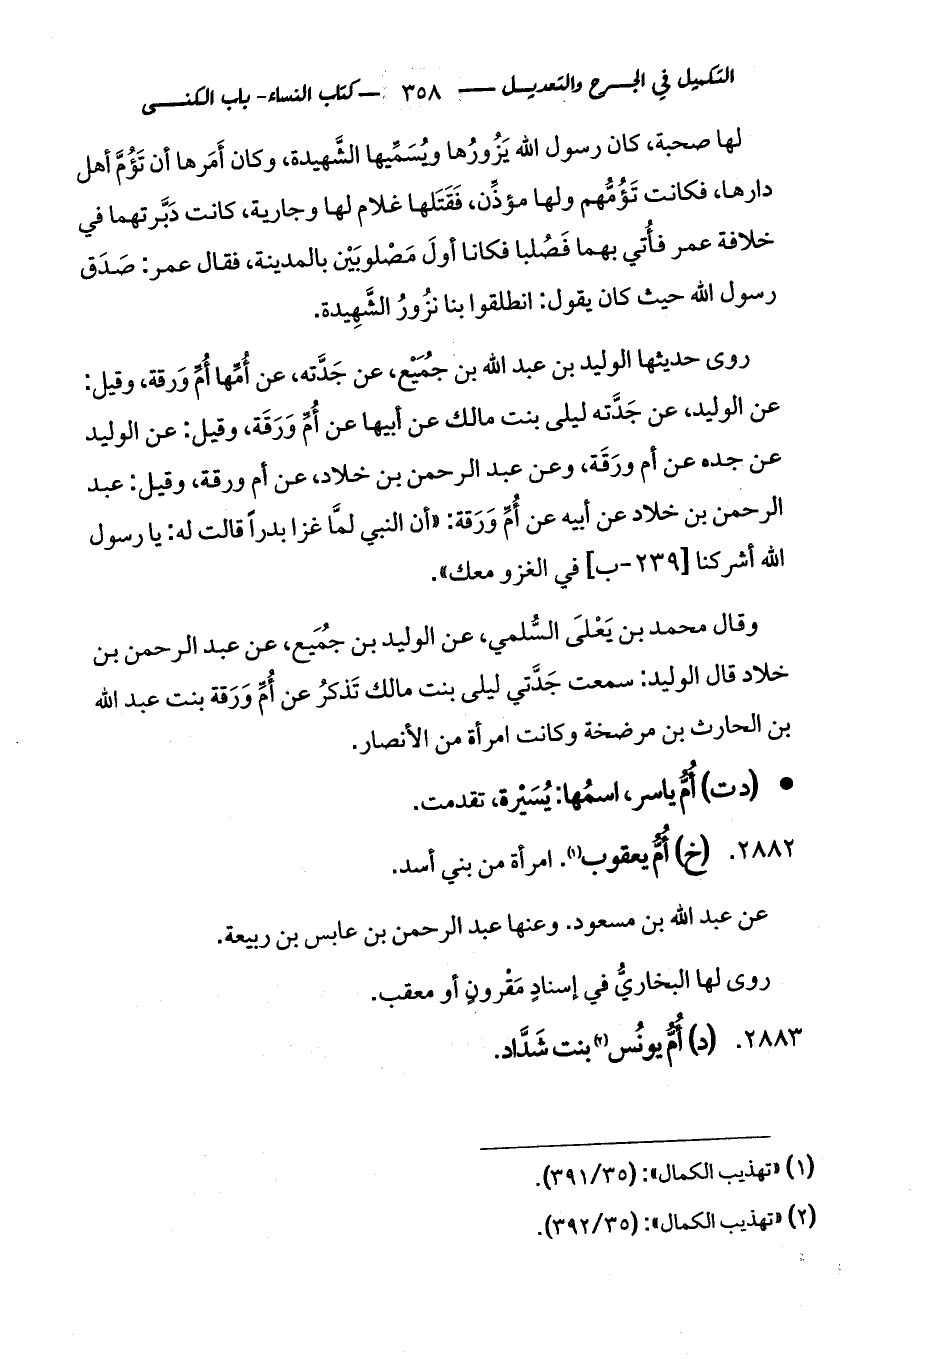 التكميل في الجرح والتعديل — ٣٥٨ — كتاب النساء - باب الكنى
لها صحبة، كان رسول الله يَزُورُها ويُسَمِّيها الشَّهيدة، وكان أَمَرها أن تَؤُمَّ أهل
دارها، فكانت تَؤُمُّهم ولها مؤذِّن، فَقَتَلها غلام لها وجارية، كانت دَبَّرتهما في
خلافة عمر فأُتي بهما فَصُلبا فكانا أولَ مَصْلوبَيْن بالمدينة، فقال عمر: صَدَق
رسول الله حيث كان يقول: انطلقوا بنا نزُورُ الشَّهِيدة.
روى حديثها الوليد بن عبد الله بن جُمَيْع، عن جَدَّته، عن أُمِّها أُمِّ وَرقة، وقيل:
عن الوليد، عن جَدَّته ليلى بنت مالك عن أبيها عن أُمِّ وَرَقَة، وقيل: عن الوليد
عن جده عن أم ورَقَة، وعن عبد الرحمن بن خلاد، عن أم ورقة، وقيل: عبد
الرحمن بن خلاد عن أبيه عن أُمِّ وَرَقة: «أن النبي لمَّا غزا بدراً قالت له: يا رسول
الله أشركنا [٢٣٩-ب] في الغزو معك».
وقال محمد بن يَعْلىَ السُّلمي، عن الوليد بن جُمَيع، عن عبد الرحمن بن
خلاد قال الوليد: سمعت جَدَّتي ليلى بنت مالك تَذكرُ عن أُمِّ وَرَقة بنت عبد الله
بن الحارث بن مرضخة وكانت امرأة من الأنصار.
• (د ت) أُمُّ ياسر، اسمُها: يُسَيْرة، تقدمت.
٢٨٨٢. (خ) أُمُّ يعقوب(١). امرأة من بني أسد.
عن عبد الله بن مسعود. وعنها عبد الرحمن بن عابس بن ربيعة.
روى لها البخاريُّ في إسنادٍ مَقْرونٍ أو معقب.
٢٨٨٣. (د) أُمُّ يونُس(٢) بنت شَدَّاد.
(١) «تهذيب الكمال»: (٣٩١/٣٥).
(٢) «تهذيب الكمال»: (٣٩٢/٣٥).